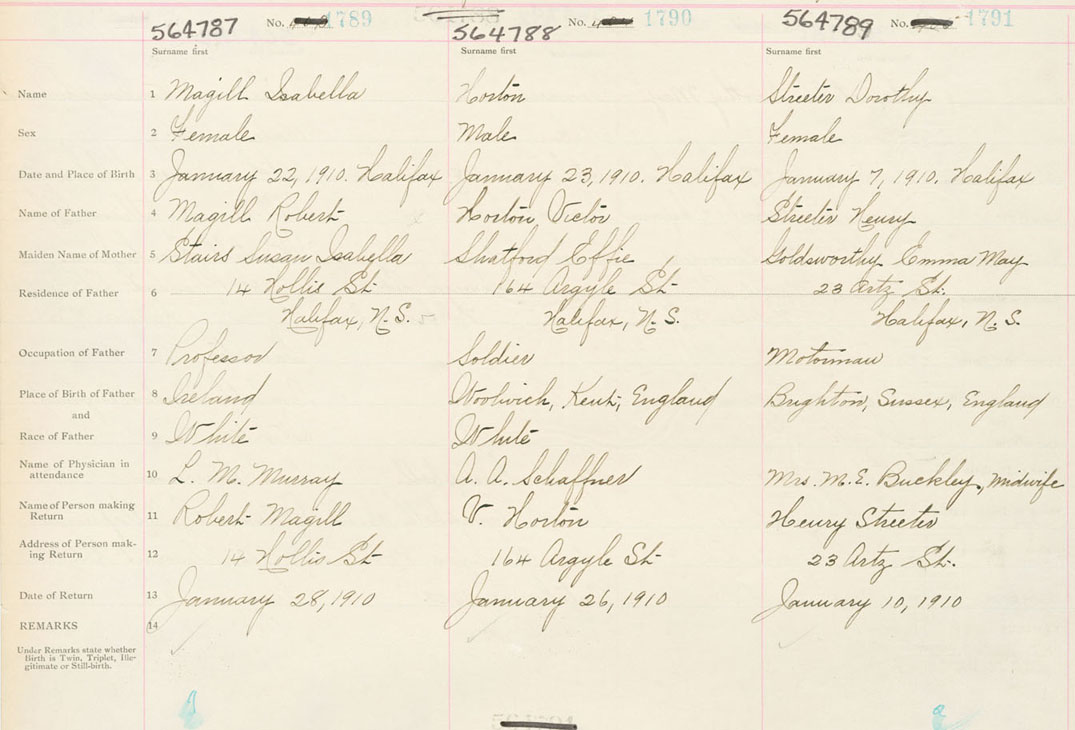 564787 No. 1789 564788 No. 1790 564789 No. 1791
Surname first Surname first Surname first
Name 1 Magill Isabella Horton Streeter Dorothy
Sex 2 Female Male Female
Date and Place of Birth 3 January 22, 1910. Halifax January 23, 1910. Halifax January 7, 1910. Halifax
Name of Father 4 Magill Robert Horton Victor Streeter Henry
Maiden Name of Mother 5 Stairs Susan Isabella Shatford Effie Goldsworthy Emma May
Residence of Father 6 14 Hollis St 164 Argyle St 23 Artz St.
Halifax, N.S. Halifax, N.S. Halifax, N.S.
Occupation of Father 7 Professor Soldier Motorman
Place of Birth of Father 8 Ireland Woolwich, Kent, England Brighton, Sussex, England
and
Race of Father 9 White White
Name of Physician in
attendance 10 L. M. Murray A. A. Schaffner Mrs. M. E. Buckley, midwife
Name of Person making
Return 11 Robert Magill V. Horton Henry Streeter
Address of Person mak-
ing Return 12 14 Hollis St 164 Argyle St 23 Artz St.
Date of Return 13 January 28, 1910 January 26, 1910 January 10, 1910
REMARKS 14
Under Remarks state whether
Birth is Twin, Triplet, Ille-
gitimate or Still-birth.